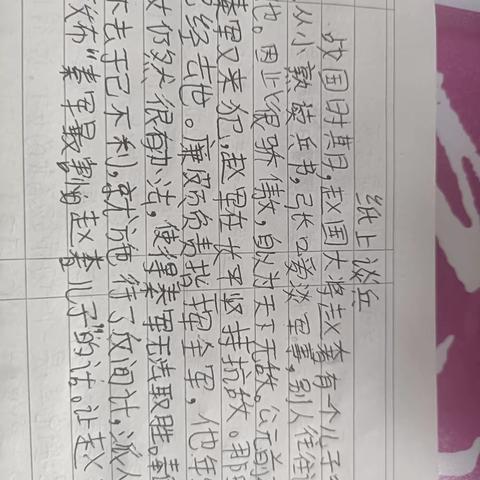 纸上谈兵
战国时期,赵国大将赵奢有一个儿子
从小熟读兵书,张口爱谈军事,别人往往
他。因此很骄傲,自以为天下无敌。公元前
秦军又来犯,赵军在长平坚持抗敌。那
经去世。廉颇负责指挥全军,他年
仍然很有办法,使得秦军无法取胜。秦
去于己不利,就施行了反间计,派人
散布“秦军最害怕赵奢儿子”的话。让赵